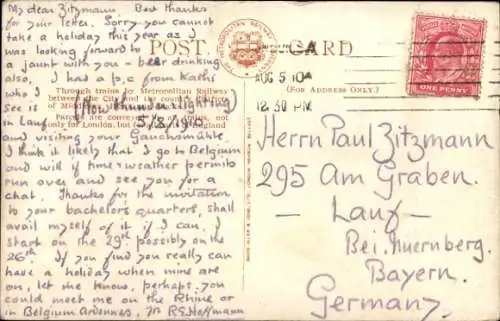 My dear Zitzmann. Best thanks
for your letter. Sorry you cannot
take a holiday this year as I
was looking forward to
a jaunt with you – beer drinking
also. I had a p.c from Kathi
who I
see is
in Lauf
and visiting your Gauchsmühle.
I think it likely that I go to Belgium
and will if time & weather permits
run over and see you for a
chat. Thanks for the invitation
to your bachelor's quarters, shall
avail myself of it if I can. I
start on the 29th possibly on the
26th. If you find you really can
have a holiday when mine are
on, let me know, perhaps you
could meet me on the Rhine or
in Belgium Ardennes. Yr R.E. Hoffmann
(Now thunder & lightning)
5/8/1910
Through trains by Metropolitan Railway
between the City and
POST CARD
METROPOLITAN RAILWAY
(FOR ADDRESS ONLY.)
AUG 5 10
12.30 PM
ONE PENNY
Herrn Paul Zitzmann
295 Am Graben.
– Lauf –
Bei. Nuernberg.
Bayern.
Germany.